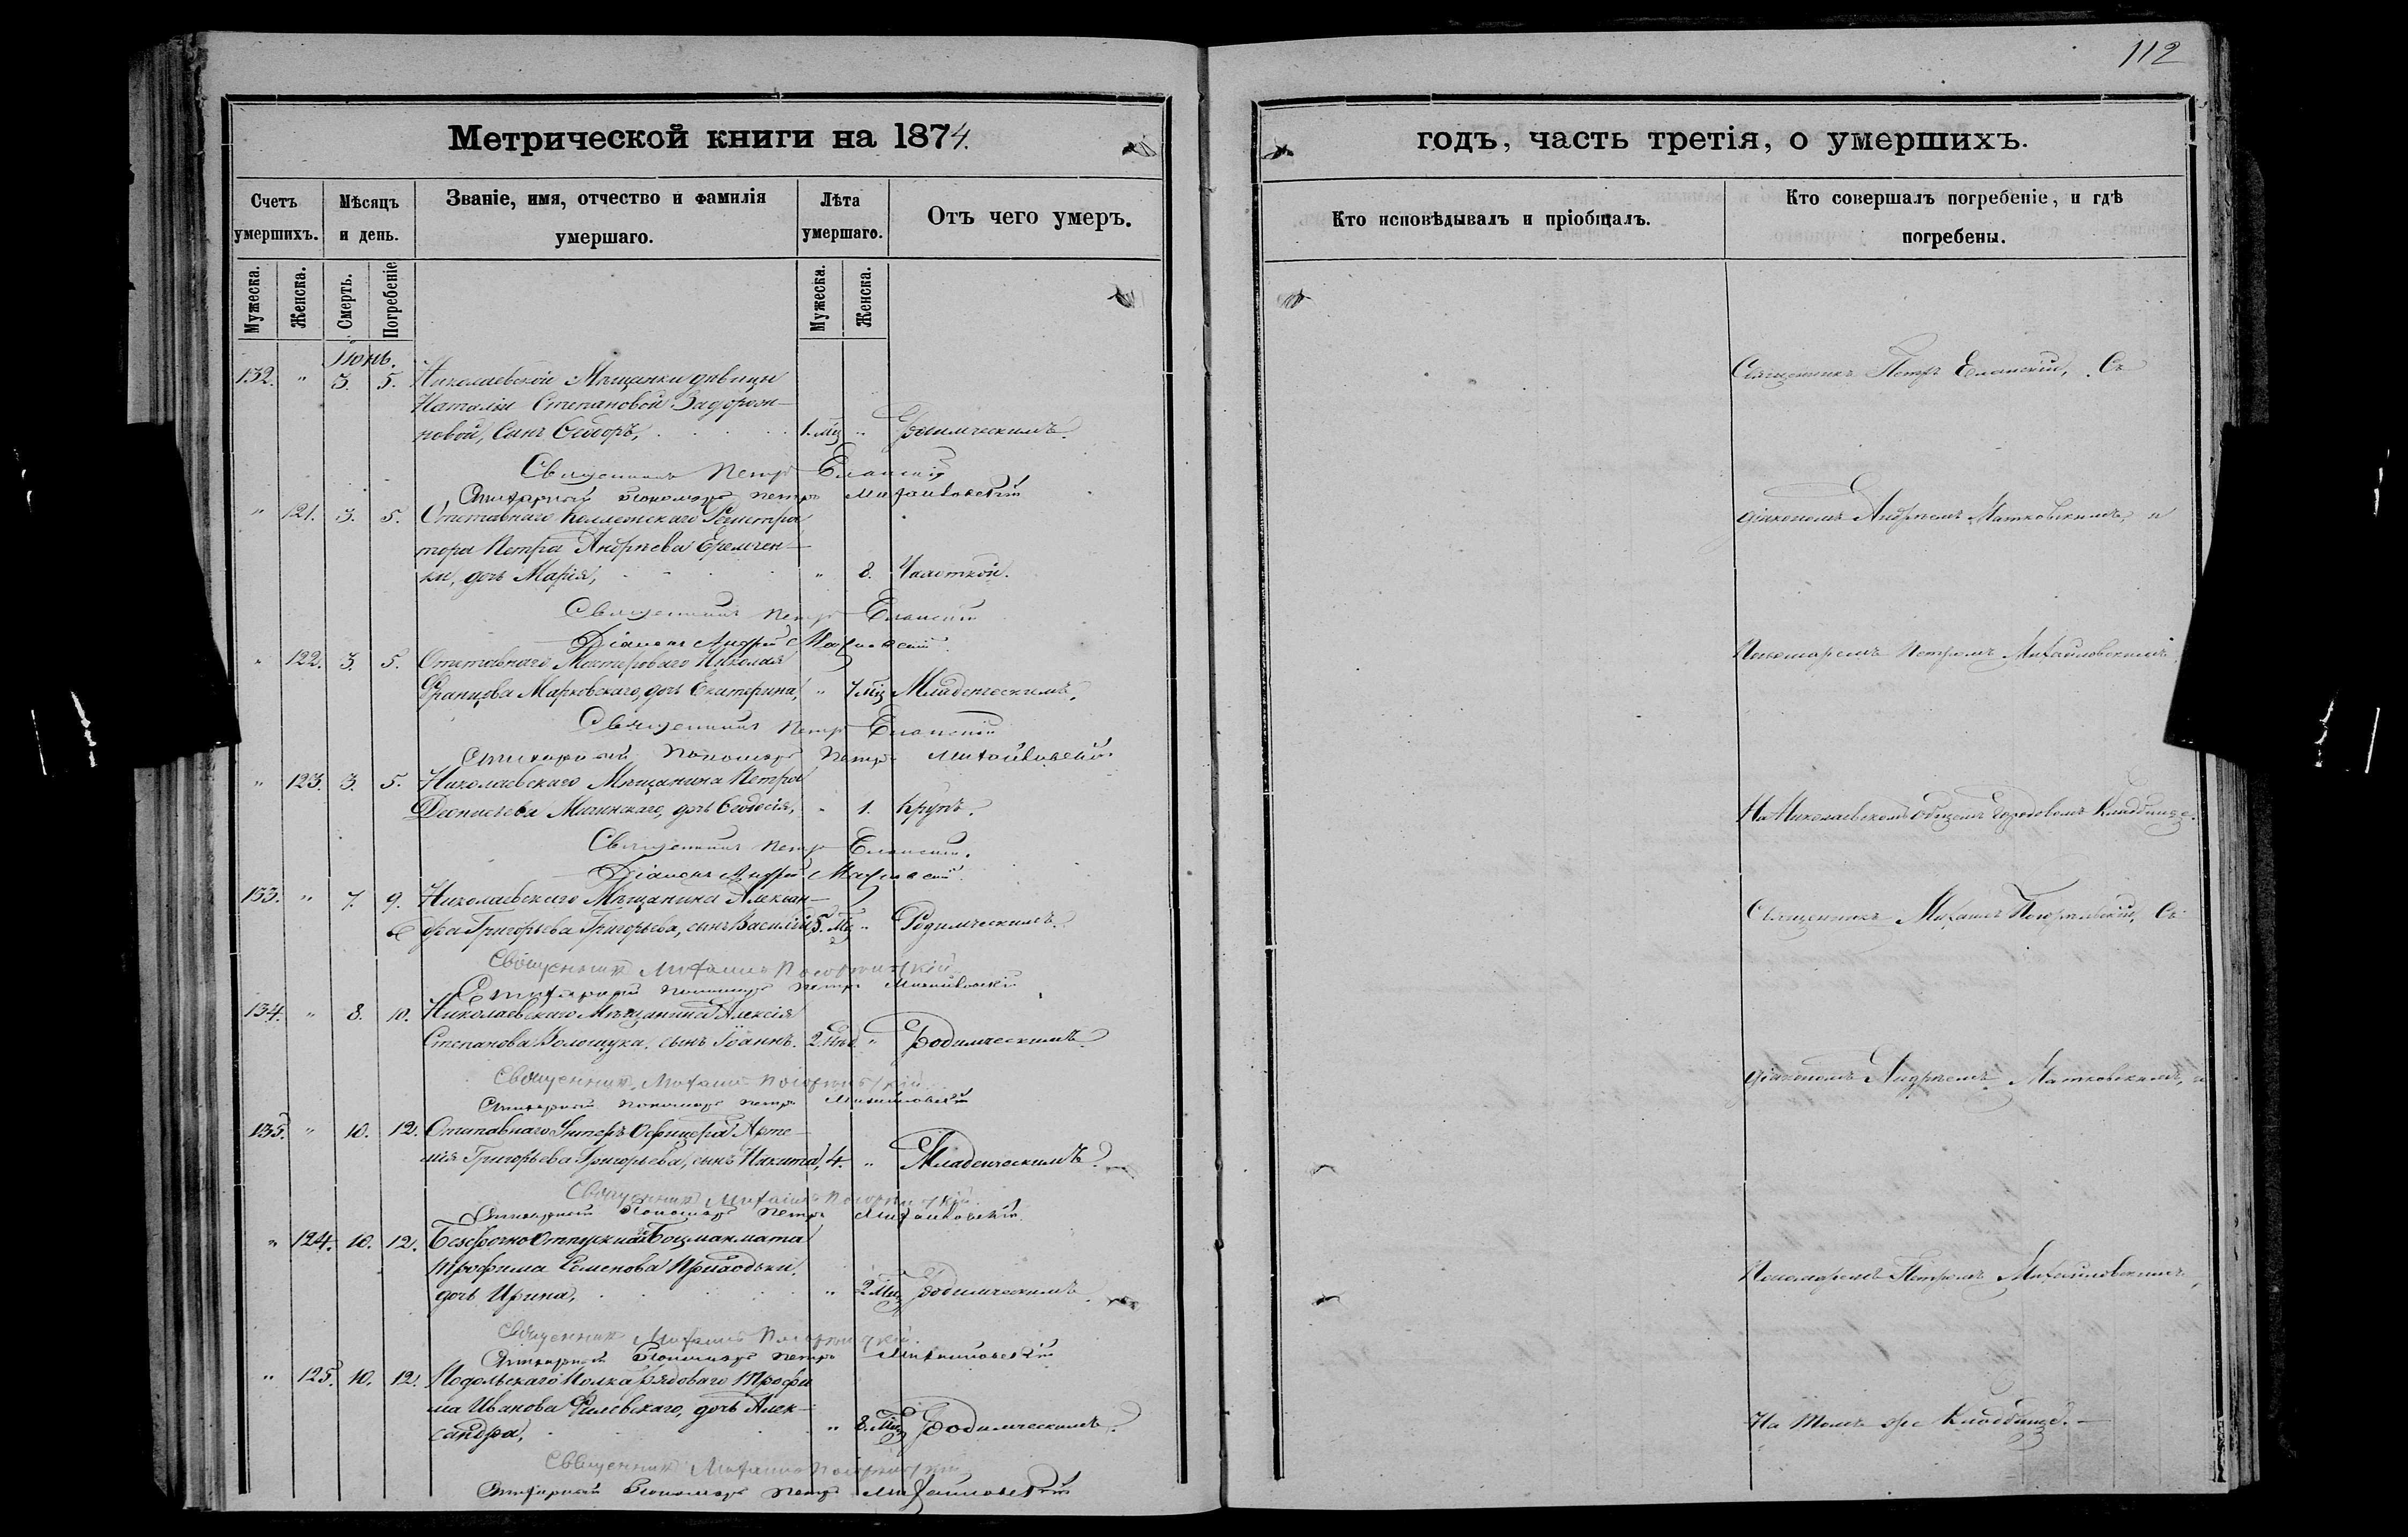 112
Метрической книги на 1874.
годъ, часть третія, о умершихъ.
Счетъ умершихъ.
Мѣсяцъ и день.
Званіе, имя, отчество и фамилія умершаго.
Лѣта умершаго.
Отъ чего умеръ.
Кто исповѣдывалъ и пріобщалъ.
Кто совершалъ погребеніе, и гдѣ погребены.
Мужеска.
Женска.
Смерть.
Погребеніе
Мужеска.
Женска.
Іюнь.
132. " 3. 5. Николаевской Мѣщанки дѣвицы
Наталіи Степановой
новой, Сынъ Ѳеодоръ, 1. мц " Родимческимъ.
Священникъ Петръ Еланскій
Штатный Пономарь Петръ Михайловскій
" 121. 3. 5. Отставнаго Коллежскаго Регистра
тора Петра Андреева Еремчен-
ки, дочь Марія, " 8. Чахоткой.
Священникъ Петръ Еланскій
Діаконъ Андрей
" 122. 3. 5. Отставнаго Мастероваго Николая
Францова Марковскаго, дочь Екатерина, " 7 мц Младенческимъ.
Священникъ Петръ Еланскій
Пономарь Петръ Михайловскій
" 123. 3. 5. Николаевскаго Мѣщанина Петра
дочь Ѳеодосія, " 1. Крупъ.
Священникъ Петръ Еланскій.
Діаконъ Андрей
133. " 7. 9. Николаевскаго Мѣщанина Алексан-
дра Григорьева Григорьева, сынъ Василій, 5. Мц " Родимческимъ.
Священникъ Михаилъ
Пономарь Петръ Михайловскій
134. " 8. 10. Николаевскаго Мѣщанина Алексія
Степанова Волощука, сынъ Іоаннъ. 2. " Родимческимъ.
Священникъ Михаилъ
Пономарь Петръ Михайловскій
135. " 10. 12. Отставнаго Унтеръ Офицера Арте-
мія Григорьева Григорьева, сынъ Никита, 4. " Младенческимъ.
Священникъ Михаилъ
Пономарь Петръ Михайловскій
" 124. 10. 12. Безсрочно Отпускнаго Боцманмата
Трофима Семенова
дочь Ирина, " 2 Мц Родимческимъ
Священникъ Михаилъ
Пономарь Петръ Михайловскій
" 125. 10. 12. Подольскаго Полка рядоваго Трофи
ма Иванова Филевскаго, дочь Алек-
сандра, " 8. Мц Родимческимъ.
Священникъ Михаилъ
Пономарь Петръ Михайловскій
Священникъ Петръ Еланскій, Съ
діакономъ Андреемъ Матковскимъ, и
Пономаремъ Петромъ Михайловскимъ,
На Николаевскомъ Общемъ Городовомъ Кладбище.
Священникъ Михаилъ Съ
діакономъ Андреемъ Матковскимъ, и
Пономаремъ Петромъ Михайловскимъ,
На томъ же Кладбище.